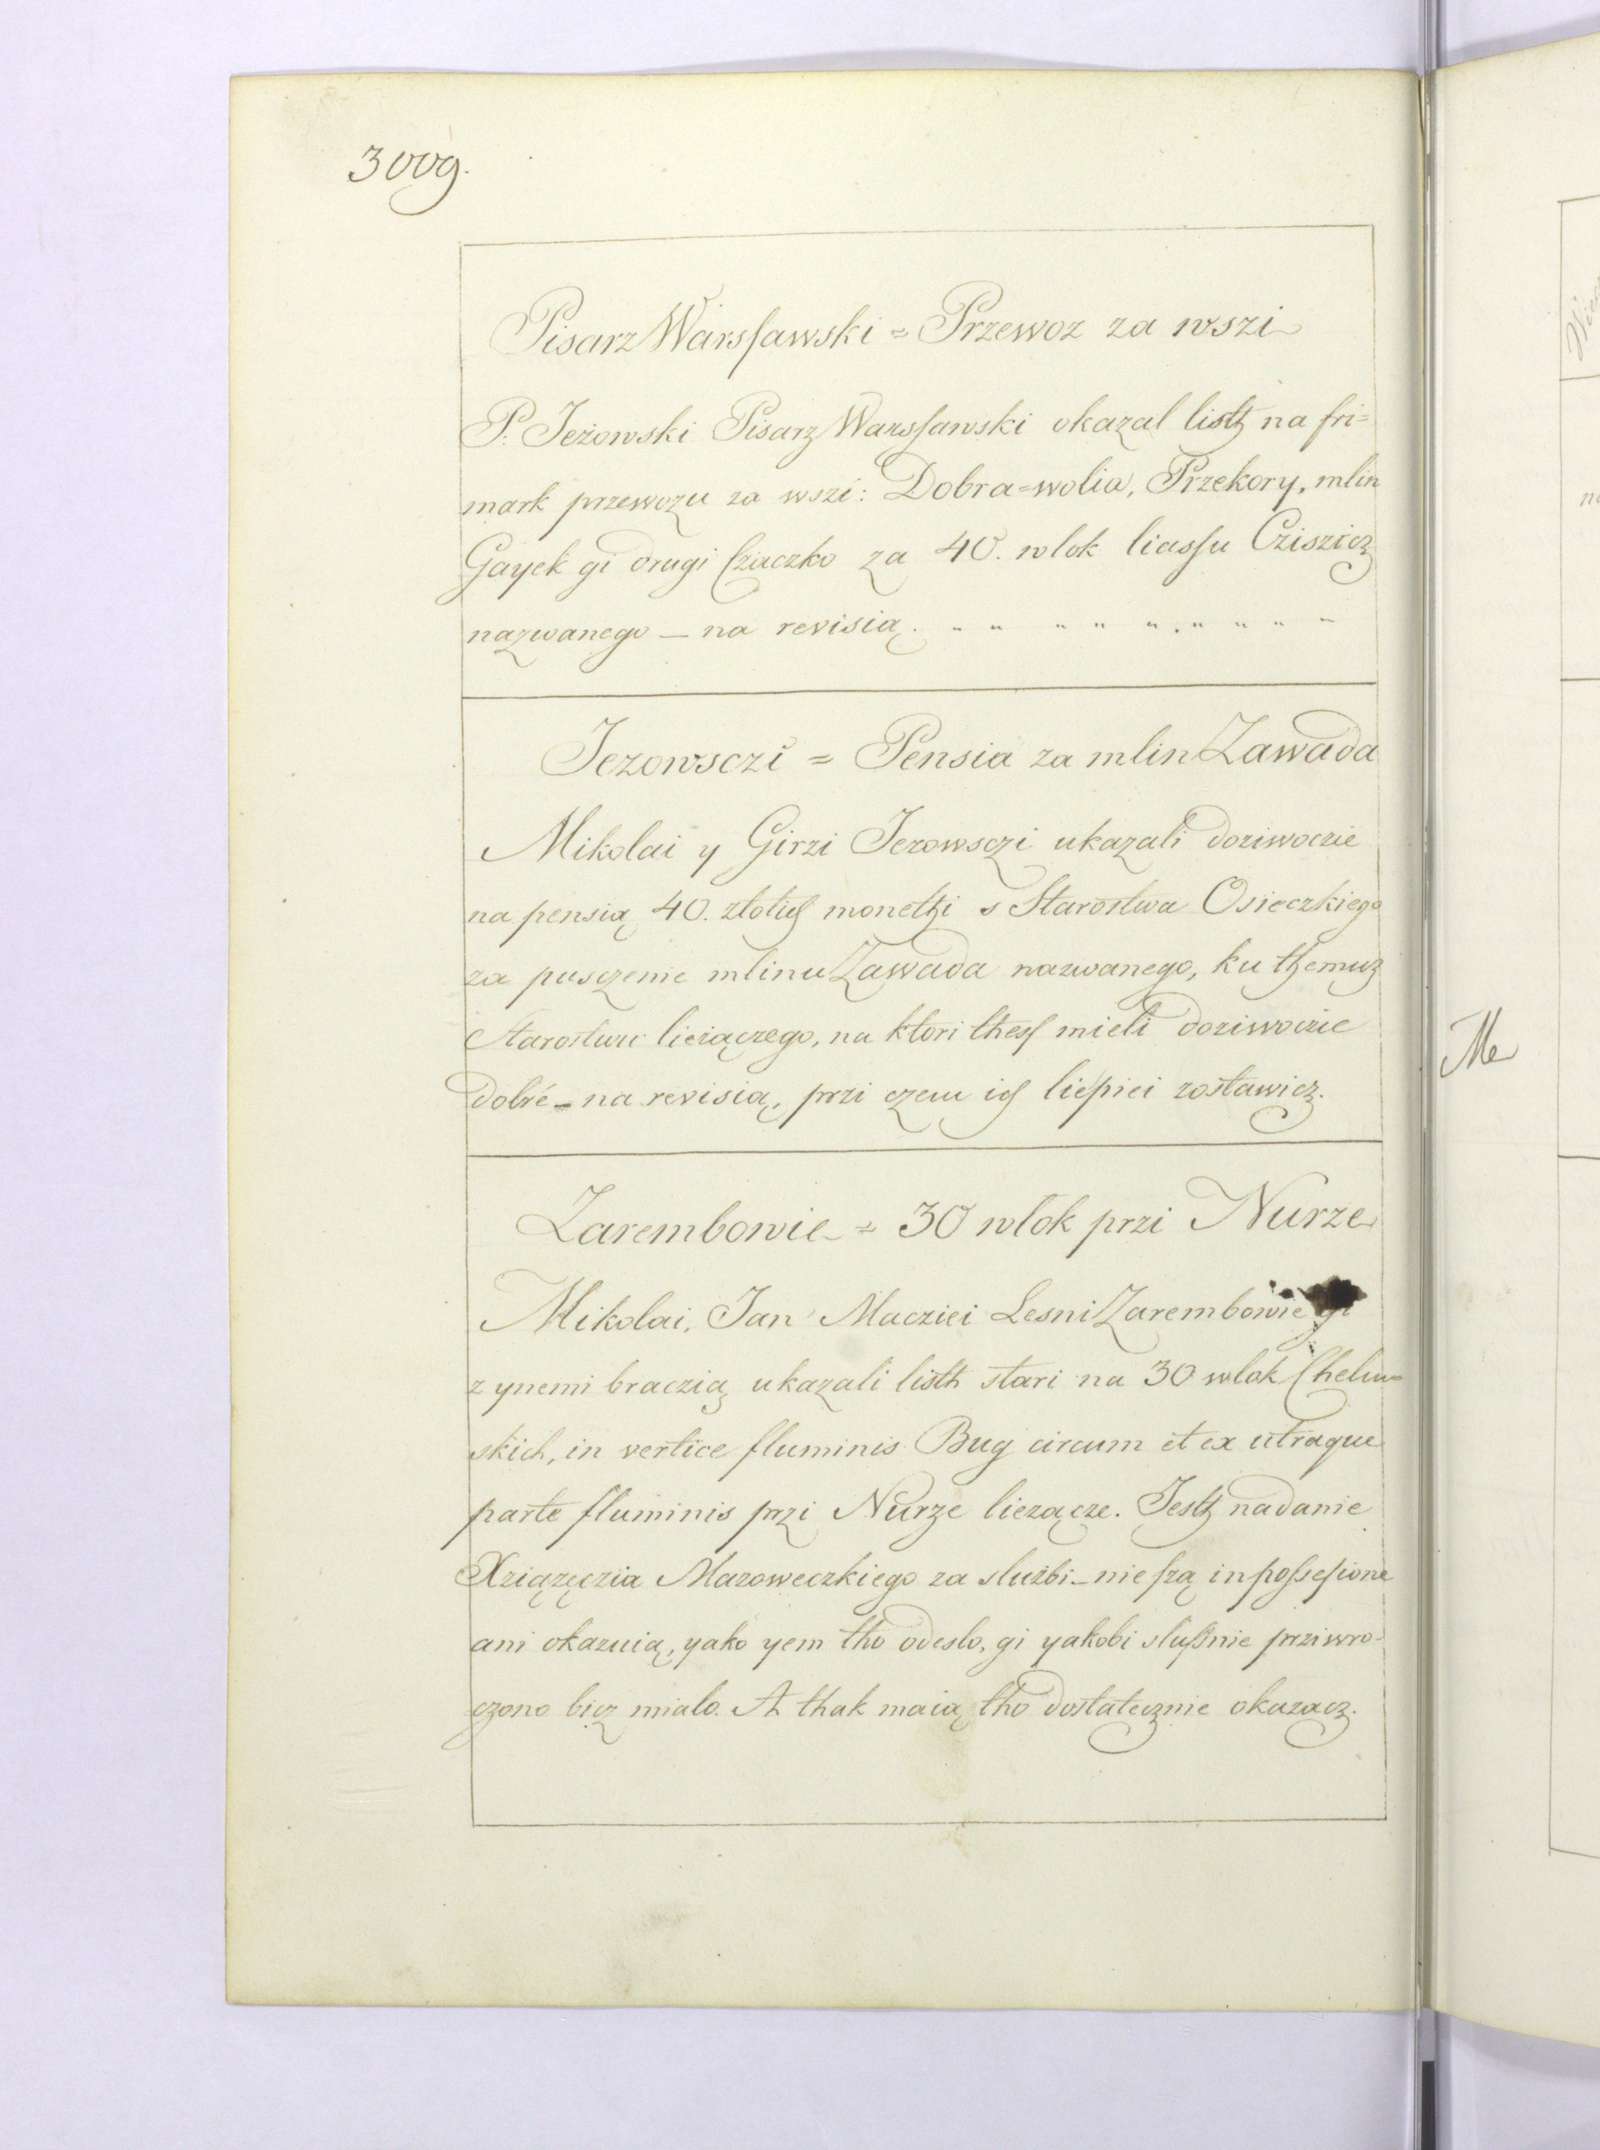 3009.
Pisarz Warsſawski = Przewoz za wszi
P. Jeżowski Pisarz Warsſawski okazal listh na fri=
mark przewozu za wszi: Dobra=wolia, Przekory, mlin
Gayek gi drugi Czaczko za 40. wlok liasſu Cziszicz
nazwanego – na revisią.
Jezowsczi = Pensia za mlin Zawada
Mikolai y Girzi Jezowsczi ukazali doziwoczie
na pensią 40. zlotich monethi s Starostwa Osieczkiego
za pusczenie mlinu Zawada nazwanego, ku themuz
Starostwu liezączego, na ktori thesz mieli doziwoczie
dobré – na revisią, przi czem ich liepiei zostawicz.
Zarembowie = 30 wlok przi Nurze
Mikolai, Jan Macziei Lesni Zarembowie gi
z ynemi braczią ukazali listh stari na 30 wlok Chelm=
skich, in vertice fluminis Bug circum et ex utraque
parte fluminis przi Nurze liezącze. Jesth nadanie
Xziązęczia Mazoweczkiego za służbi – nie ſzą in poſseſsione
ani okazuią, yako yem tho odeslo, gi yakobi sluſsnie przivro-
czono bicz mialo. A thak maią tho dostatecznie okazacz.
Me